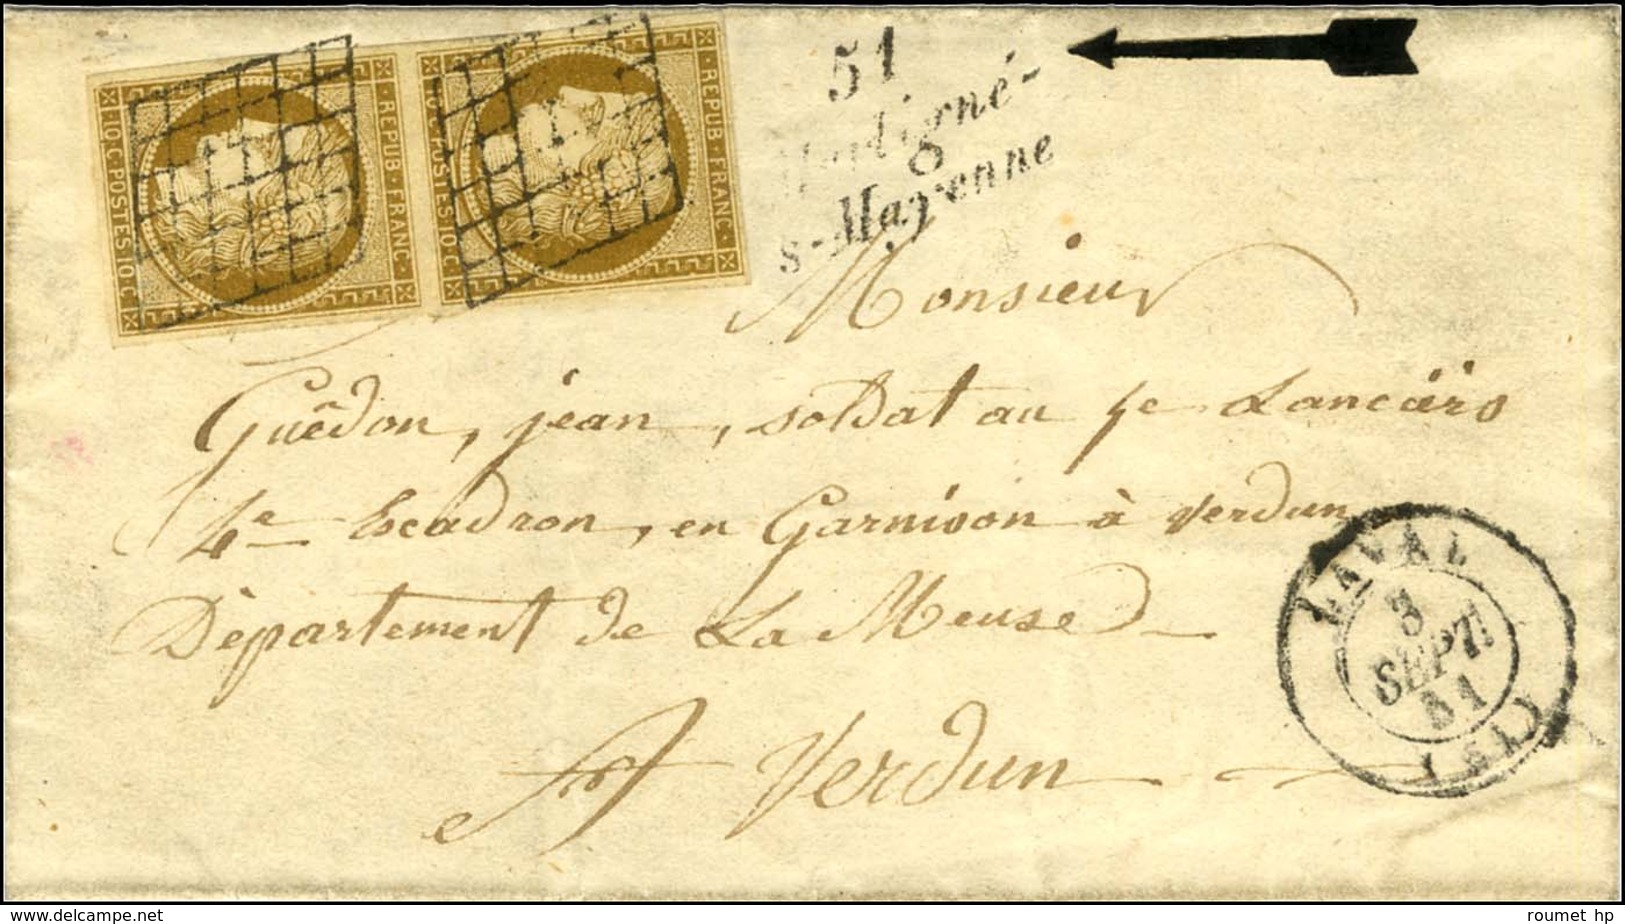 REPUB·FRANC·
10·C·POSTES·10·C·
REPUB·FRANC·
10·C·POSTES·10·C·
51
Montigné-
s-Mayenne
Monsieur
Guêdon, jean, soldat au 5e Lanciérs
4e Escadron, en Garnison à Verdun
Dèpartement de La Meuse
A Verdun
LAVAL
3
SEPT.
51
roumet hp